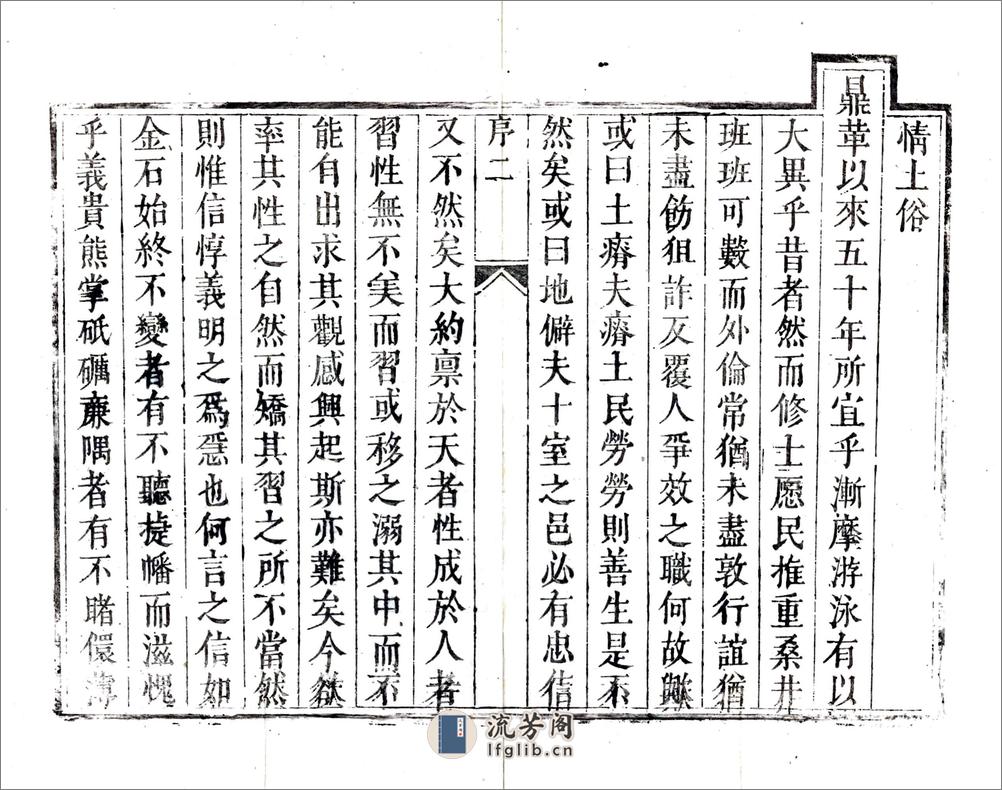 情土俗
鼎革以來五十年所宜乎漸摩游泳有以
大異乎昔者然而修士愿民推重桑井
班班可數而外倫常猶未盡敦行誼猶
未盡飭狙詐反覆人爭效之職何故歟
或曰土瘠夫瘠土民勞勞則善生是不
然矣或曰地僻夫十室之邑必有忠信
序二
又不然矣大約禀於天者性成於人者
習性無不美而習或移之溺其中而不
能自出求其觀感興起斯亦難矣今欲
率其性之自然而矯其習之所不當然
則惟信惇義明之爲亟也何言之信如
金石始終不變者有不聽捷幡而滋愧
乎義貴熊掌砥礪亷隅者有不睹儇薄
流芳阁
lfglib.cn